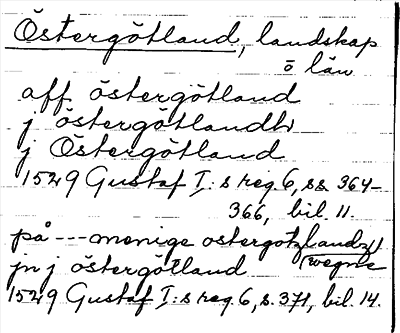 Östergötland, landskap
o län
aff östergötland
j östergötlandh
j Östergötland
1529 Gustaf I:s reg. 6, ss 364-
366, bil. 11.
på --- menige ostergötzlandz
wegne
jn j östergötland
1529 Gustaf I:s reg. 6, s. 371, bil. 14.